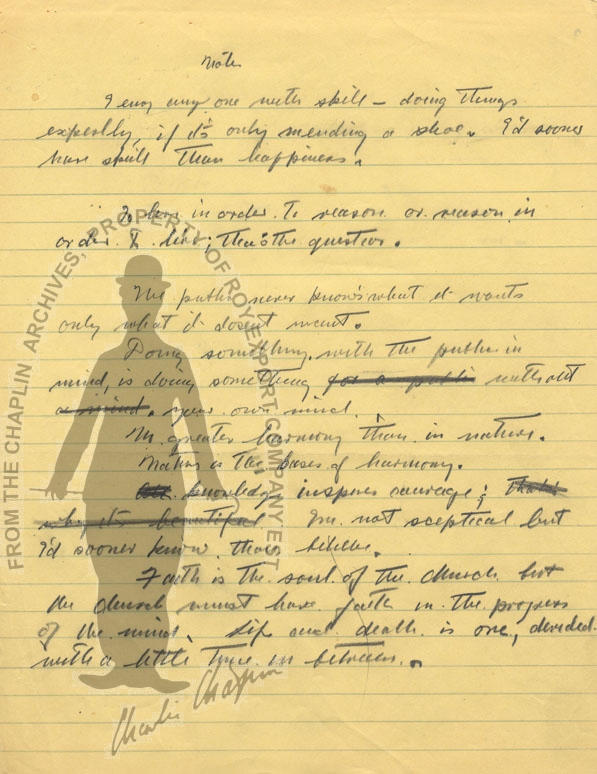 Notes
I envy any one with skill – doing things
expertly, if it's only mending a shoe. I'd sooner
have skill than happiness.
To live in order to reason or reason in
order to live; that's the question.
The public never knows what it wants
only what it doesn't want.
Doing something with the public in
mind, is doing something for a public without
a mind. your own mind.
No greater harmony than in nature.
Nature is the bases of harmony.
knowledge inspires courage; That's
why it's beautiful I'm not sceptical but
I'd sooner know than believe.
Faith is the soul of the church but
the church must have faith in the progress
of the mind. Life and death is one, divided
with a little time in between.
FROM THE CHAPLIN ARCHIVES, PROPERTY OF ROY EXPORT COMPANY EST
Charlie Chaplin